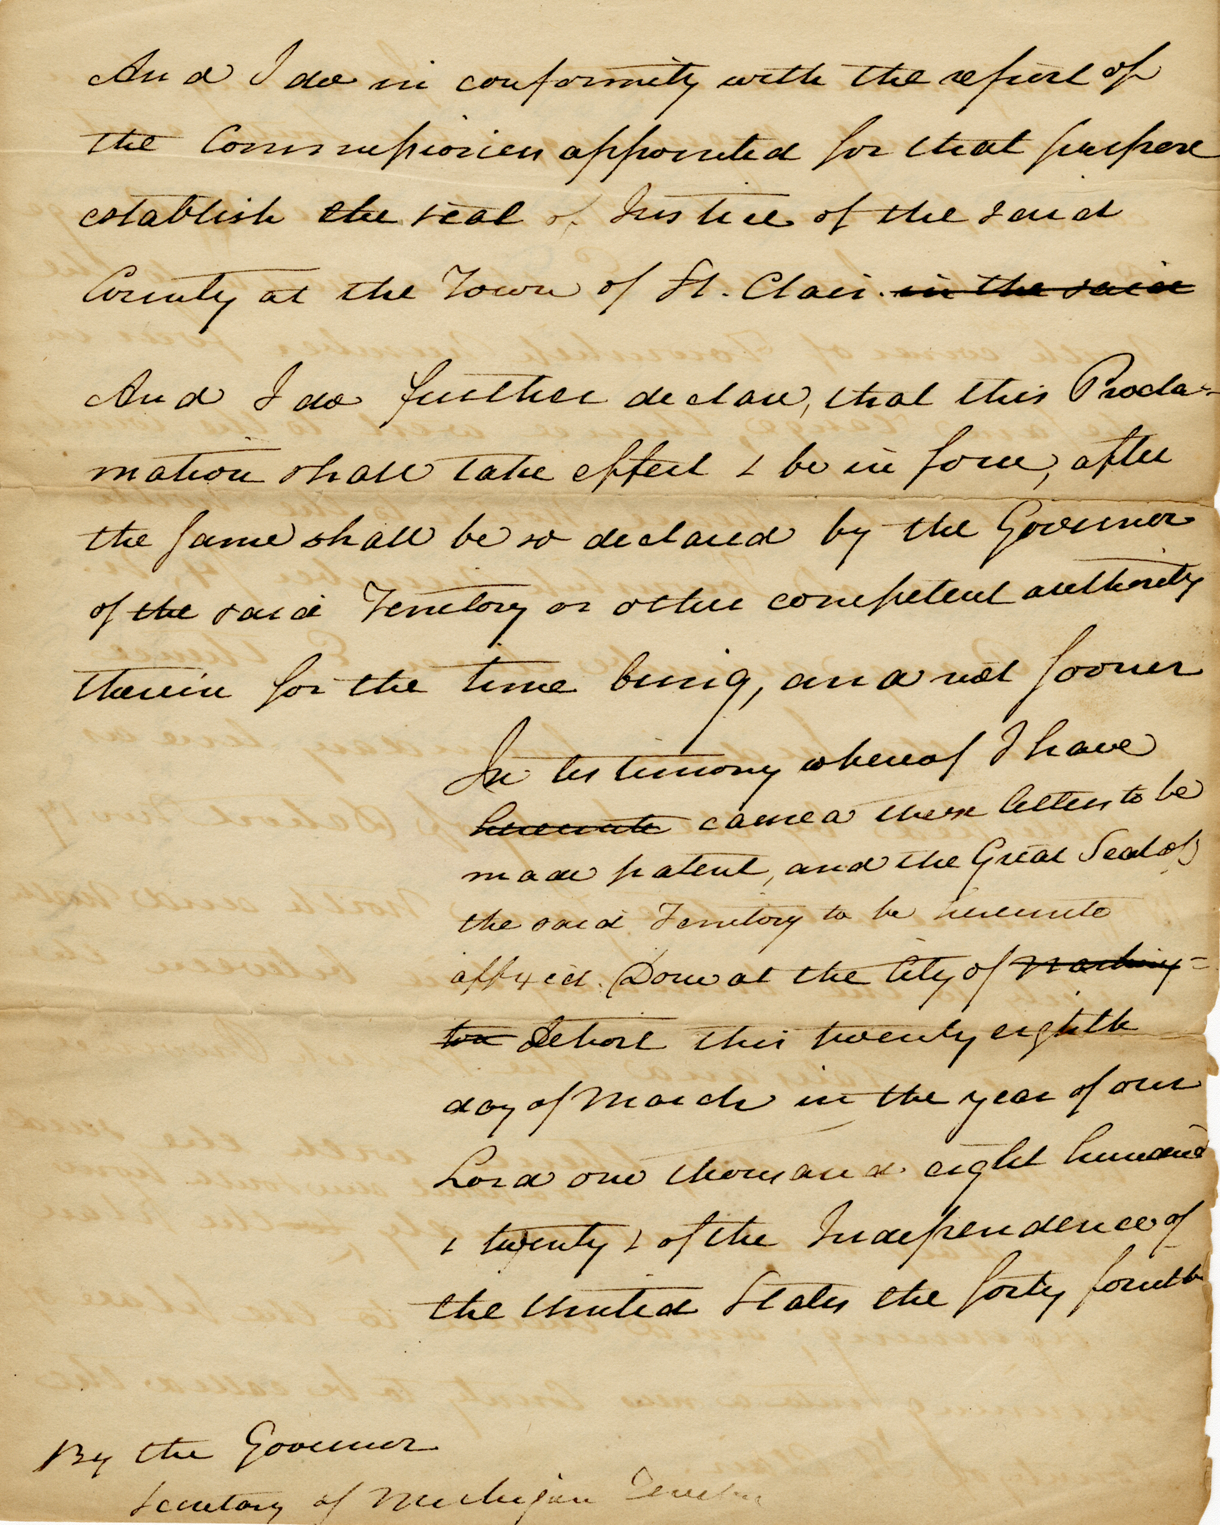 And I do in conformity with the report of
the Commissioners appointed for that purpose
establish the seat of Justice of the said
County at the Town of St. Clair. in the said
And I do further declare, that this Procla-
mation shall take effect & be in force, after
the same shall be so declared by the Governor
of the said Territory or other competent authority
therein for the time being, and not sooner
In testimony whereof I have
hereunto caused these letters to be
made patent, and the Great Seal of
the said Territory to be hereunto
affixed. Done at the City of Washing=
ton Detroit this twenty eighth
day of March in the year of our
Lord one thousand eight hundred
& twenty & of the Independence of
the United States the forty fourth
By the Governor
Secretary of Michigan Territory